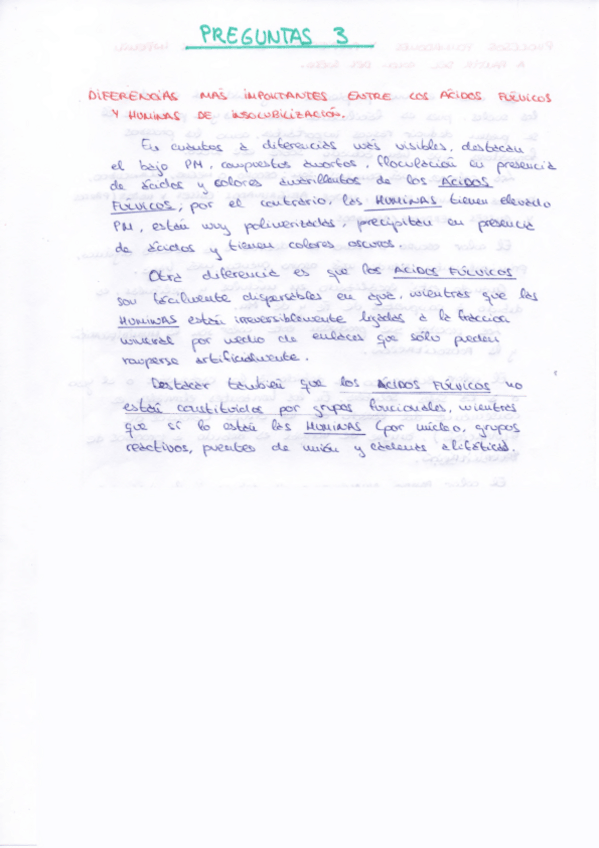 PREGUNTAS 3
DIFERENCIAS MAS IMPORTANTES ENTRE LOS ÁCIDOS FÚLVICOS
Y HUMINAS DE INSOLUBILIZACIÓN.
En cuantos a diferencias más visibles, destacan
el bajo PM, compuestos amorfos, floculación en presencia
de ácidos y colores amarillentos de los ÁCIDOS
FÚLVICOS; por el contrario, las HUMINAS tienen elevado
PM, están muy polimerizadas, precipitan en presencia
de ácidos y tienen colores oscuros.
Otra diferencia es que los ÁCIDOS FÚLVICOS
son fácilmente dispersables en agua, mientras que las
HUMINAS están irreversiblemente ligadas a la fracción
mineral por medio de enlaces que sólo pueden
romperse artificialmente.
Destacar también que los ÁCIDOS FÚLVICOS no
están constituidos por grupos funcionales, mientras
que sí lo están las HUMINAS (por núcleo, grupos
reactivos, puentes de unión y cadenas alifáticas).